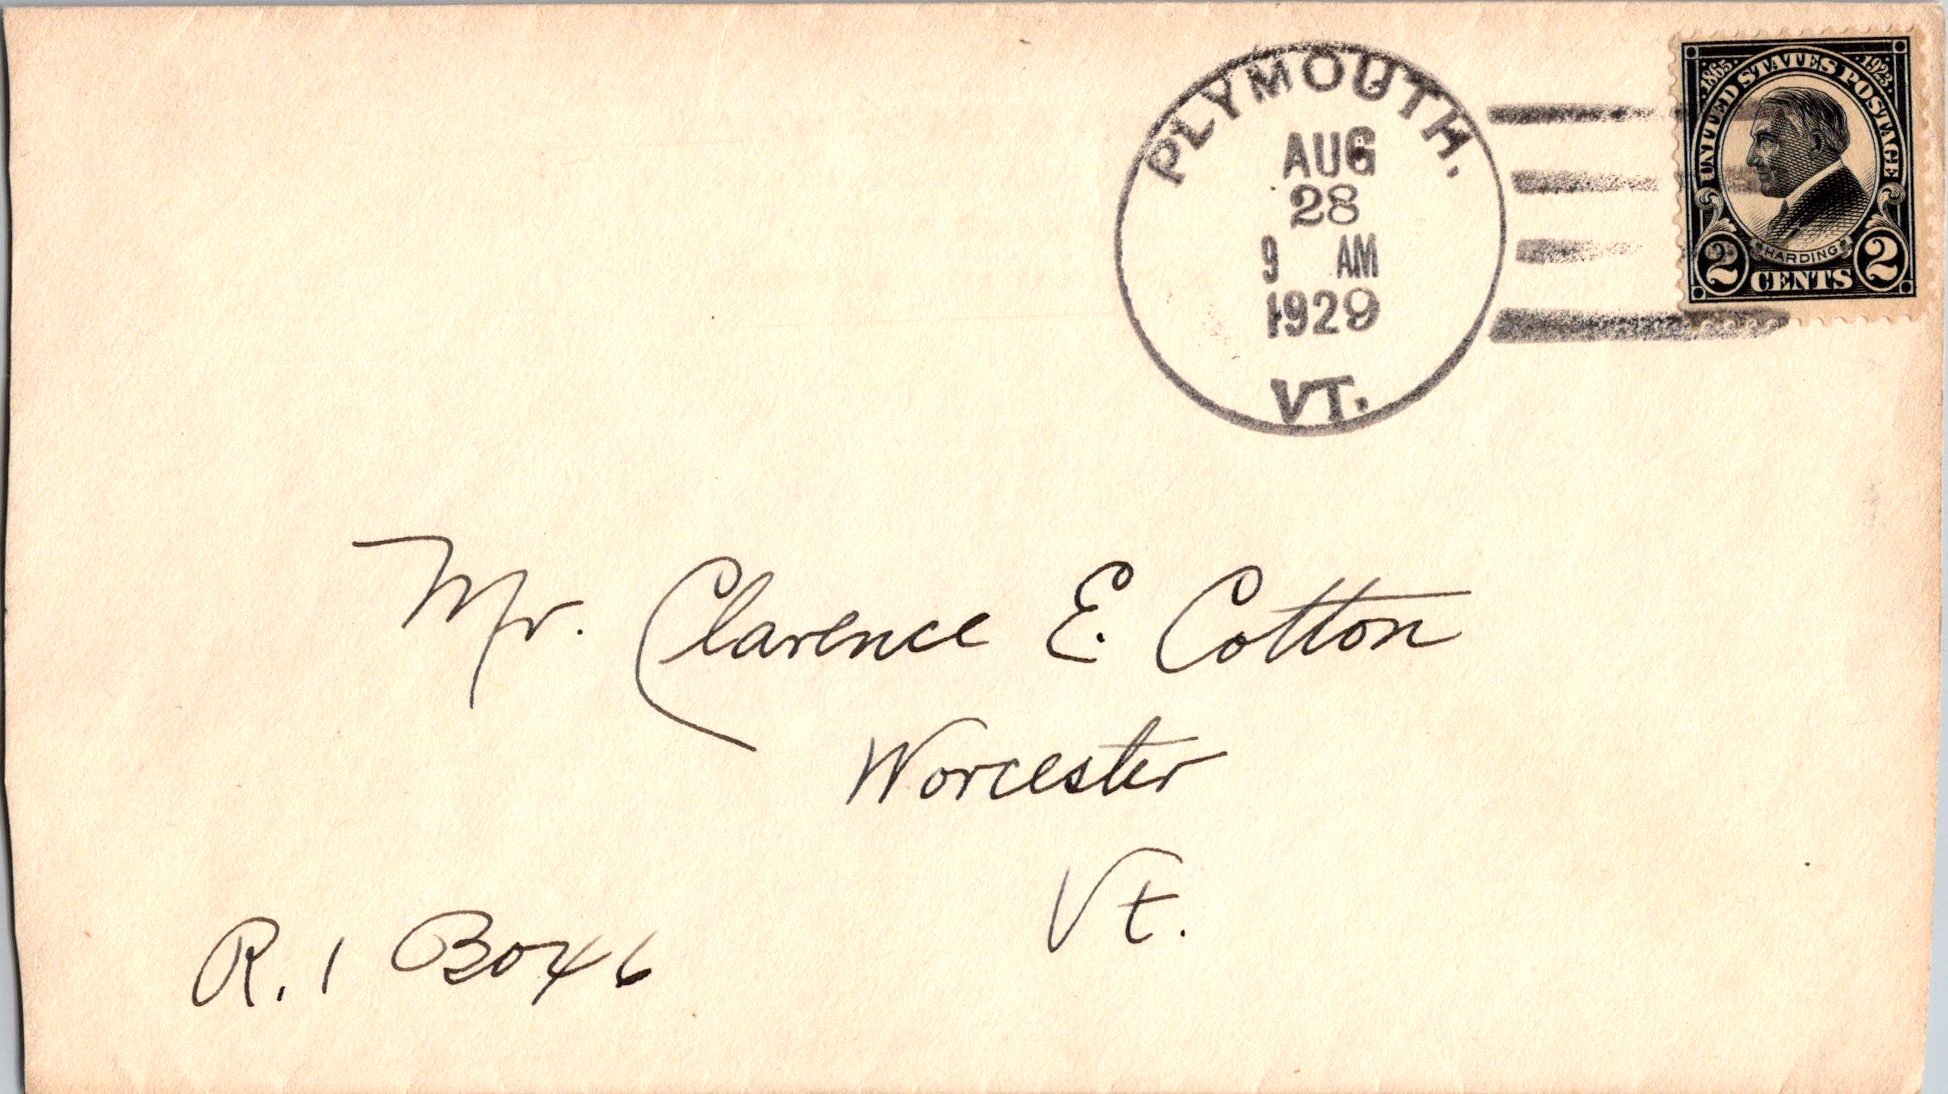 PLYMOUTH.
AUG
28
9 AM
1929
VT.
1865 1923
UNITED STATES POSTAGE
HARDING
2 CENTS 2
Mr. Clarence E. Cotton
Worcester
Vt.
R. 1 Box 46